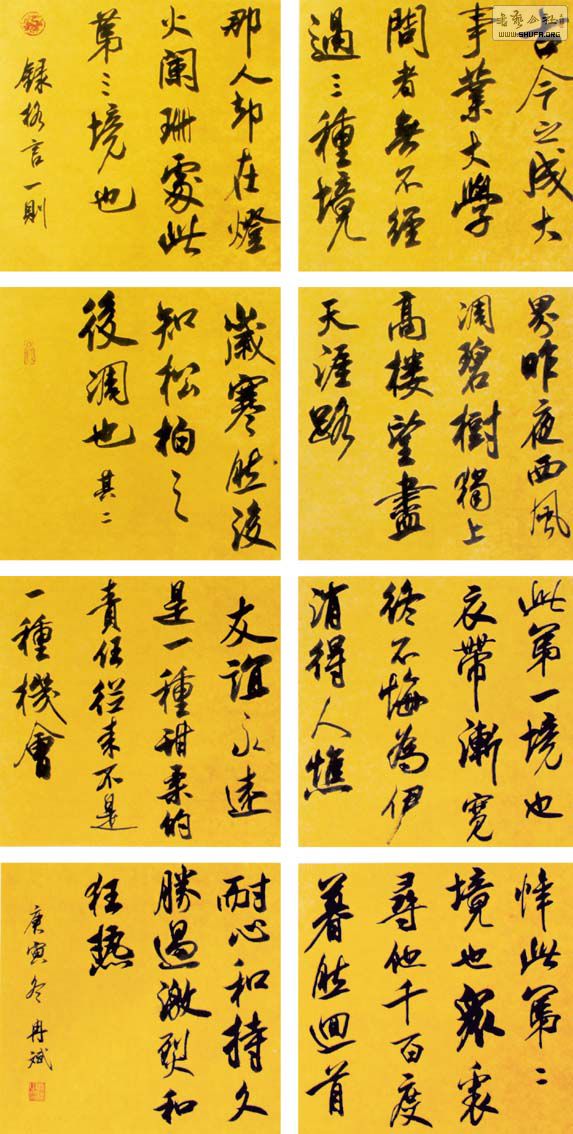 书艺公社
WWW.SHUFA.ORG
古今之成大
事業大學
問者無不經
過三種境
界昨夜西風
凋碧樹獨上
高樓望盡
天涯路
此第一境也
衣帶漸寬
終不悔為伊
消得人憔
悴此第二
境也眾裏
尋他千百度
暮然迴首
那人却在燈
火闌珊處此
第三境也
録格言一則
歲寒然後
知松柏之
後凋也 其二
友誼永遠
是一種甜柔的
責任從來不是
一種機會
耐心和持久
勝過激烈和
狂熱
庚寅冬 冉斌